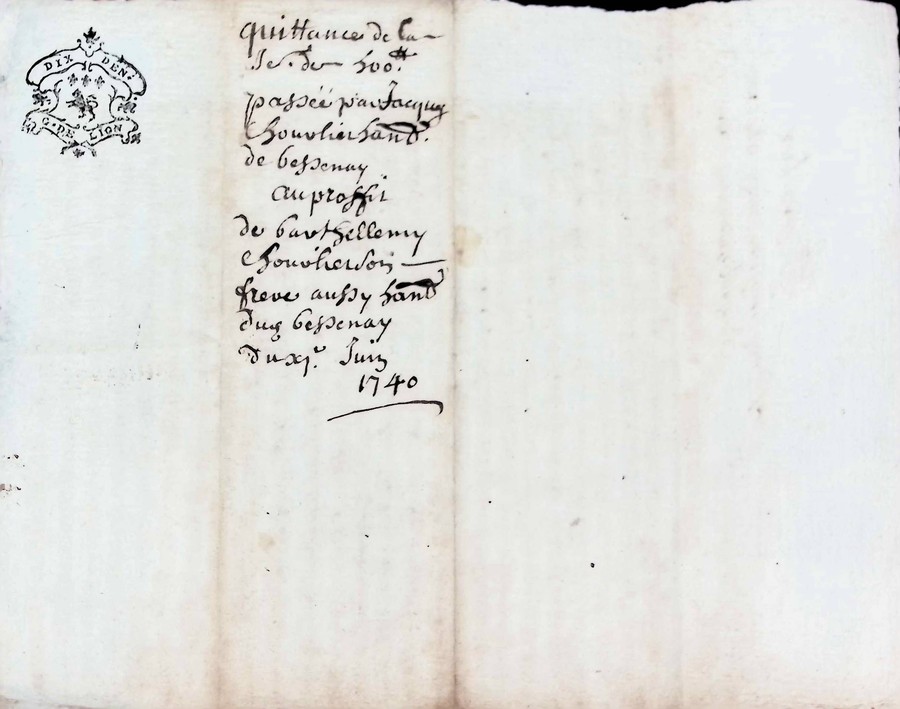 DIX DEN.
G. DE LION
quittance de la
Se. de
passéé par Jacque
Chovelier hantt.
de bessenay
au proffit
de barthellemy
Chovelier son
frere aussy hantt
dug bessenay
du xje. Juin
1740